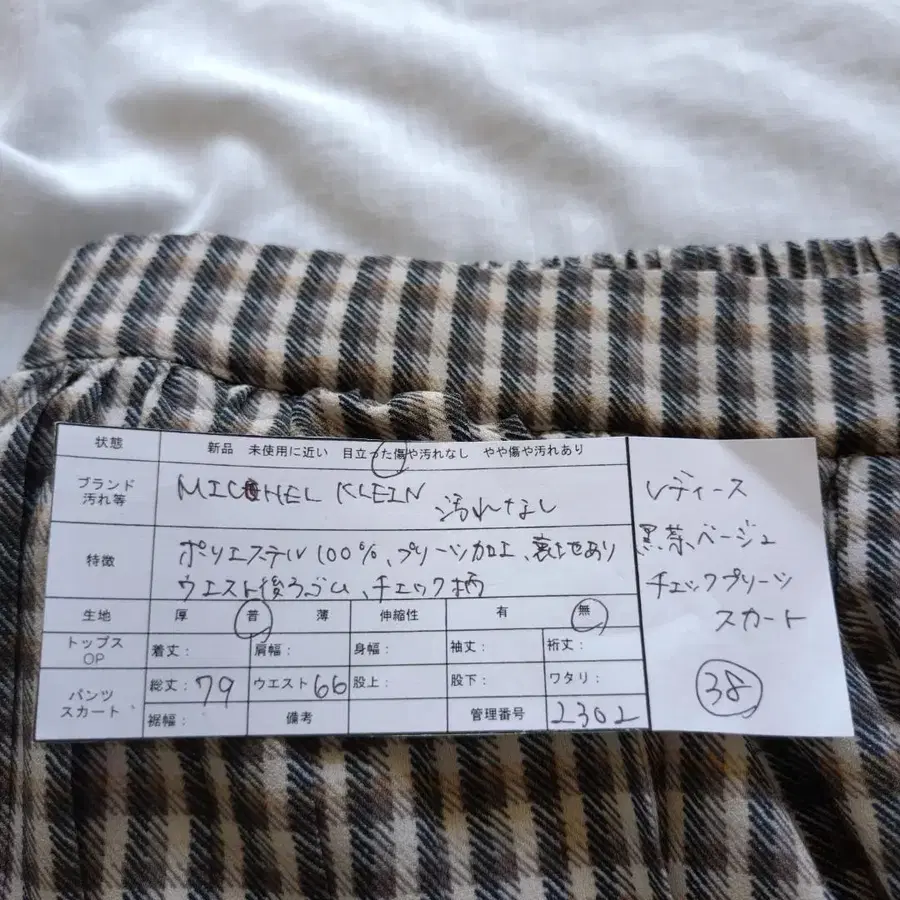 状態 新品 未使用に近い 目立った傷や汚れなし やや傷や汚れあり
ブランド 汚れ等 MICHEL KLEIN 汚れなし
特徴 ポリエステル100%、プリーツ加工、裏地あり
ウエスト後ろゴム、チェック柄
生地 厚 普 薄 伸縮性 有 無
トップス OP 着丈: 肩幅: 身幅: 袖丈: 裄丈:
パンツ スカート 総丈:79 ウエスト66 股上: 股下: ワタリ:
裾幅: 備考 管理番号 2302
レディース
黒茶ベージュ
チェックプリーツ
スカート
38